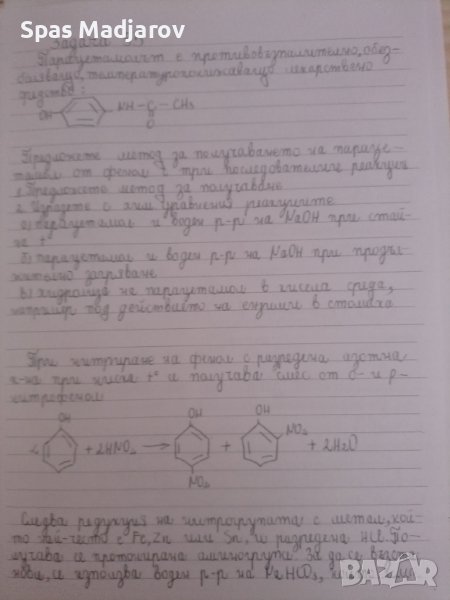 Spas Madjarov
Задача
Парацетамолът е противовъзпалително, обез-
боляващо, температуропонижаващо лекарствено
средство:
OH NH-C-CH₃
O
Предложете метод за получаването на параце-
тамол от фенол с три последователни реакции
1. Предложете метод за получаване
2. Изразете с хим. уравнения реакциите
а) парацетамол и воден р-р на NaOH при стай-
на t°
б) парацетамол и воден р-р на NaOH при продъл-
жително загряване
в) хидролиза на парацетамол в кисела среда,
например под действието на ензими в стомаха
При нитриране на фенол с разредена азотна
к-на при ниска t° се получава смес от о- и р-
нитрофенол
OH OH OH
2 + 2HNO₃ → + NO₂ + 2H₂O
NO₂
Следва редукция на нитрогрупата с метал, кой-
то най-често е Fe, Zn или Sn, и разредена HCl. По-
лучава се протонирана аминогрупа. За да се възста-
нови, се използва воден р-р на NaHCO₃,
bazar